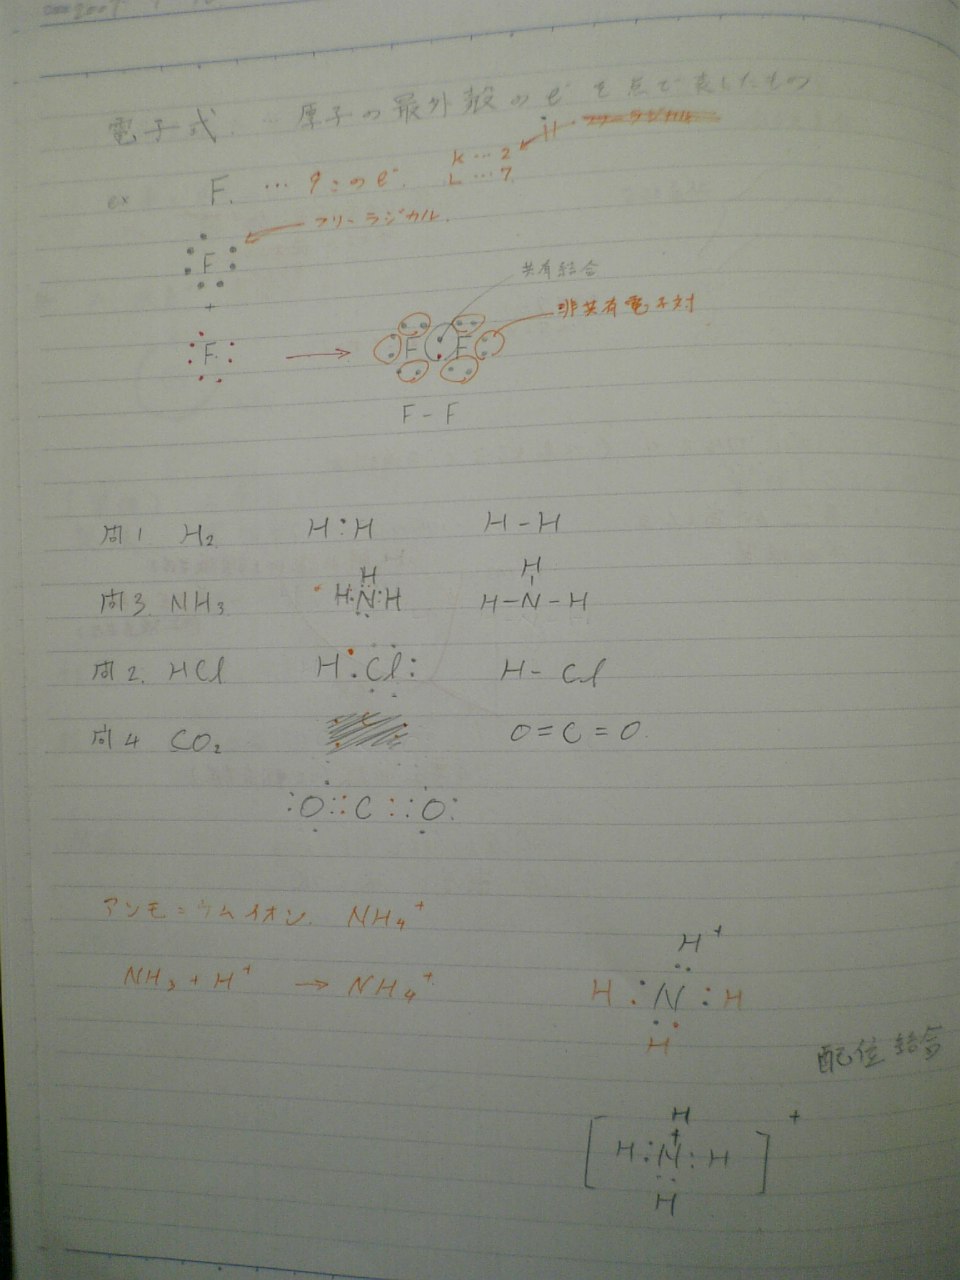 電子式 … 原子の最外殻のe⁻を点で表したもの
ex F … 9このe⁻ K…2
L…7
H
フリーラジカル
F
+
F → F F
共有結合
非共有電子対
F-F
問1 H₂ H:H H-H
問3 NH₃ H:N:H H-N-H
H H
問2. HCl H:Cl: H-Cl
問4 CO₂ O=C=O
:O::C::O:
アンモニウムイオン NH₄⁺
NH₃+H⁺ → NH₄⁺
H⁺
H:N:H
H
配位結合
H
[H:N:H]⁺
H